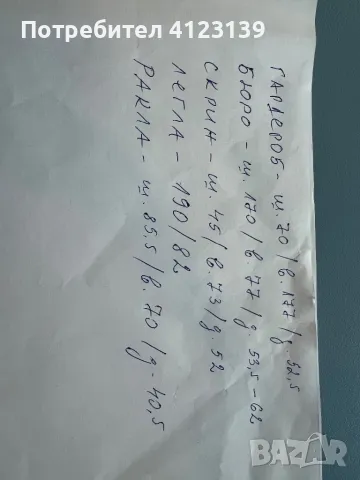 Потребител 4123139
ГАРДЕРОБ - ш. 70 / в. 177 / g. 52,5
БЮРО - ш. 170 / в. 77 / g. 53,5 - 62
СКРИН - ш. 45 / в. 73 / g. 52
ЛЕГЛА - 190 / 82
РАКЛА - ш. 85,5 / в. 70 / g - 40,5
BAZAR